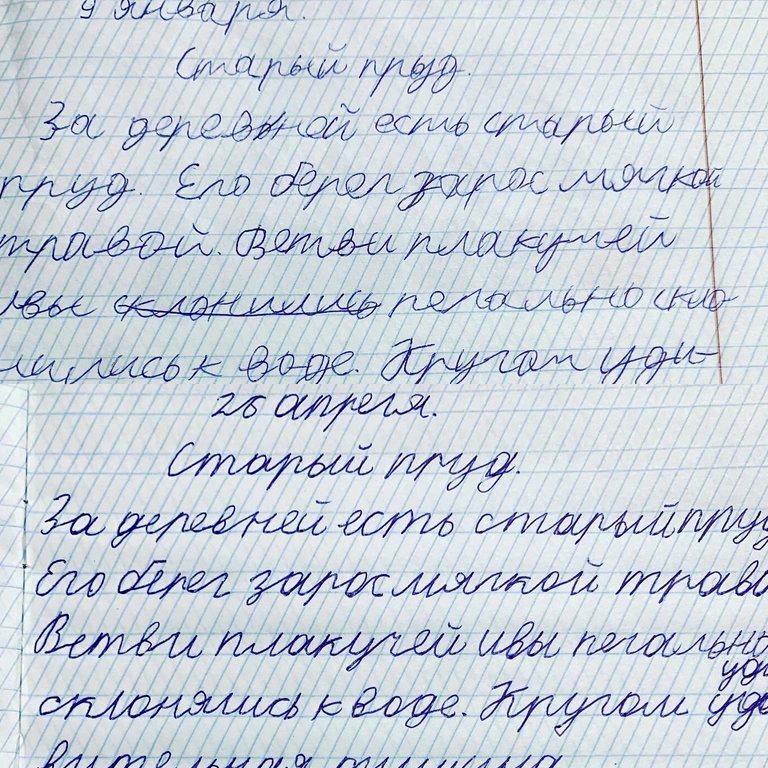 9 января.
Старый пруд.
За деревней есть старый
пруд. Его берег зарос мягкой
травой. Ветви плакучей
ивы склонились печально скло
нились к воде. Кругом уди-
26 апреля.
Старый пруд.
За деревней есть старый пруд
Его берег зарос мягкой траво
Ветви плакучей ивы печально
склонялись к воде. Кругом уди
вительная тишина